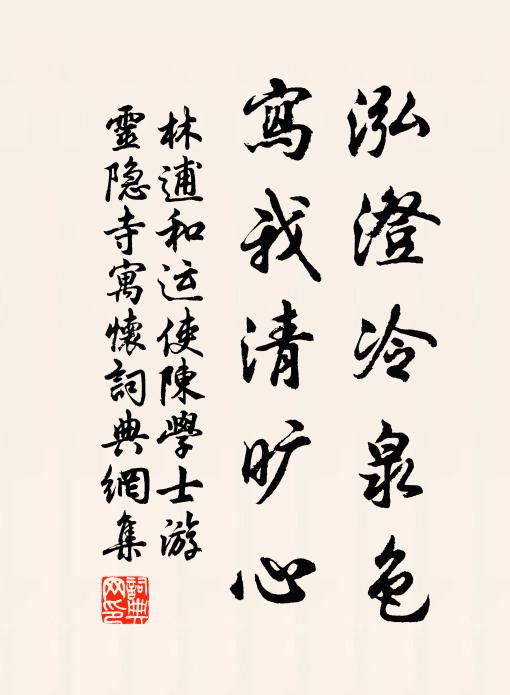 泓澄冷泉色
寫我清旷心
林逋和运使陳學士游
靈隐寺寓懷詞典網集
詞典网印